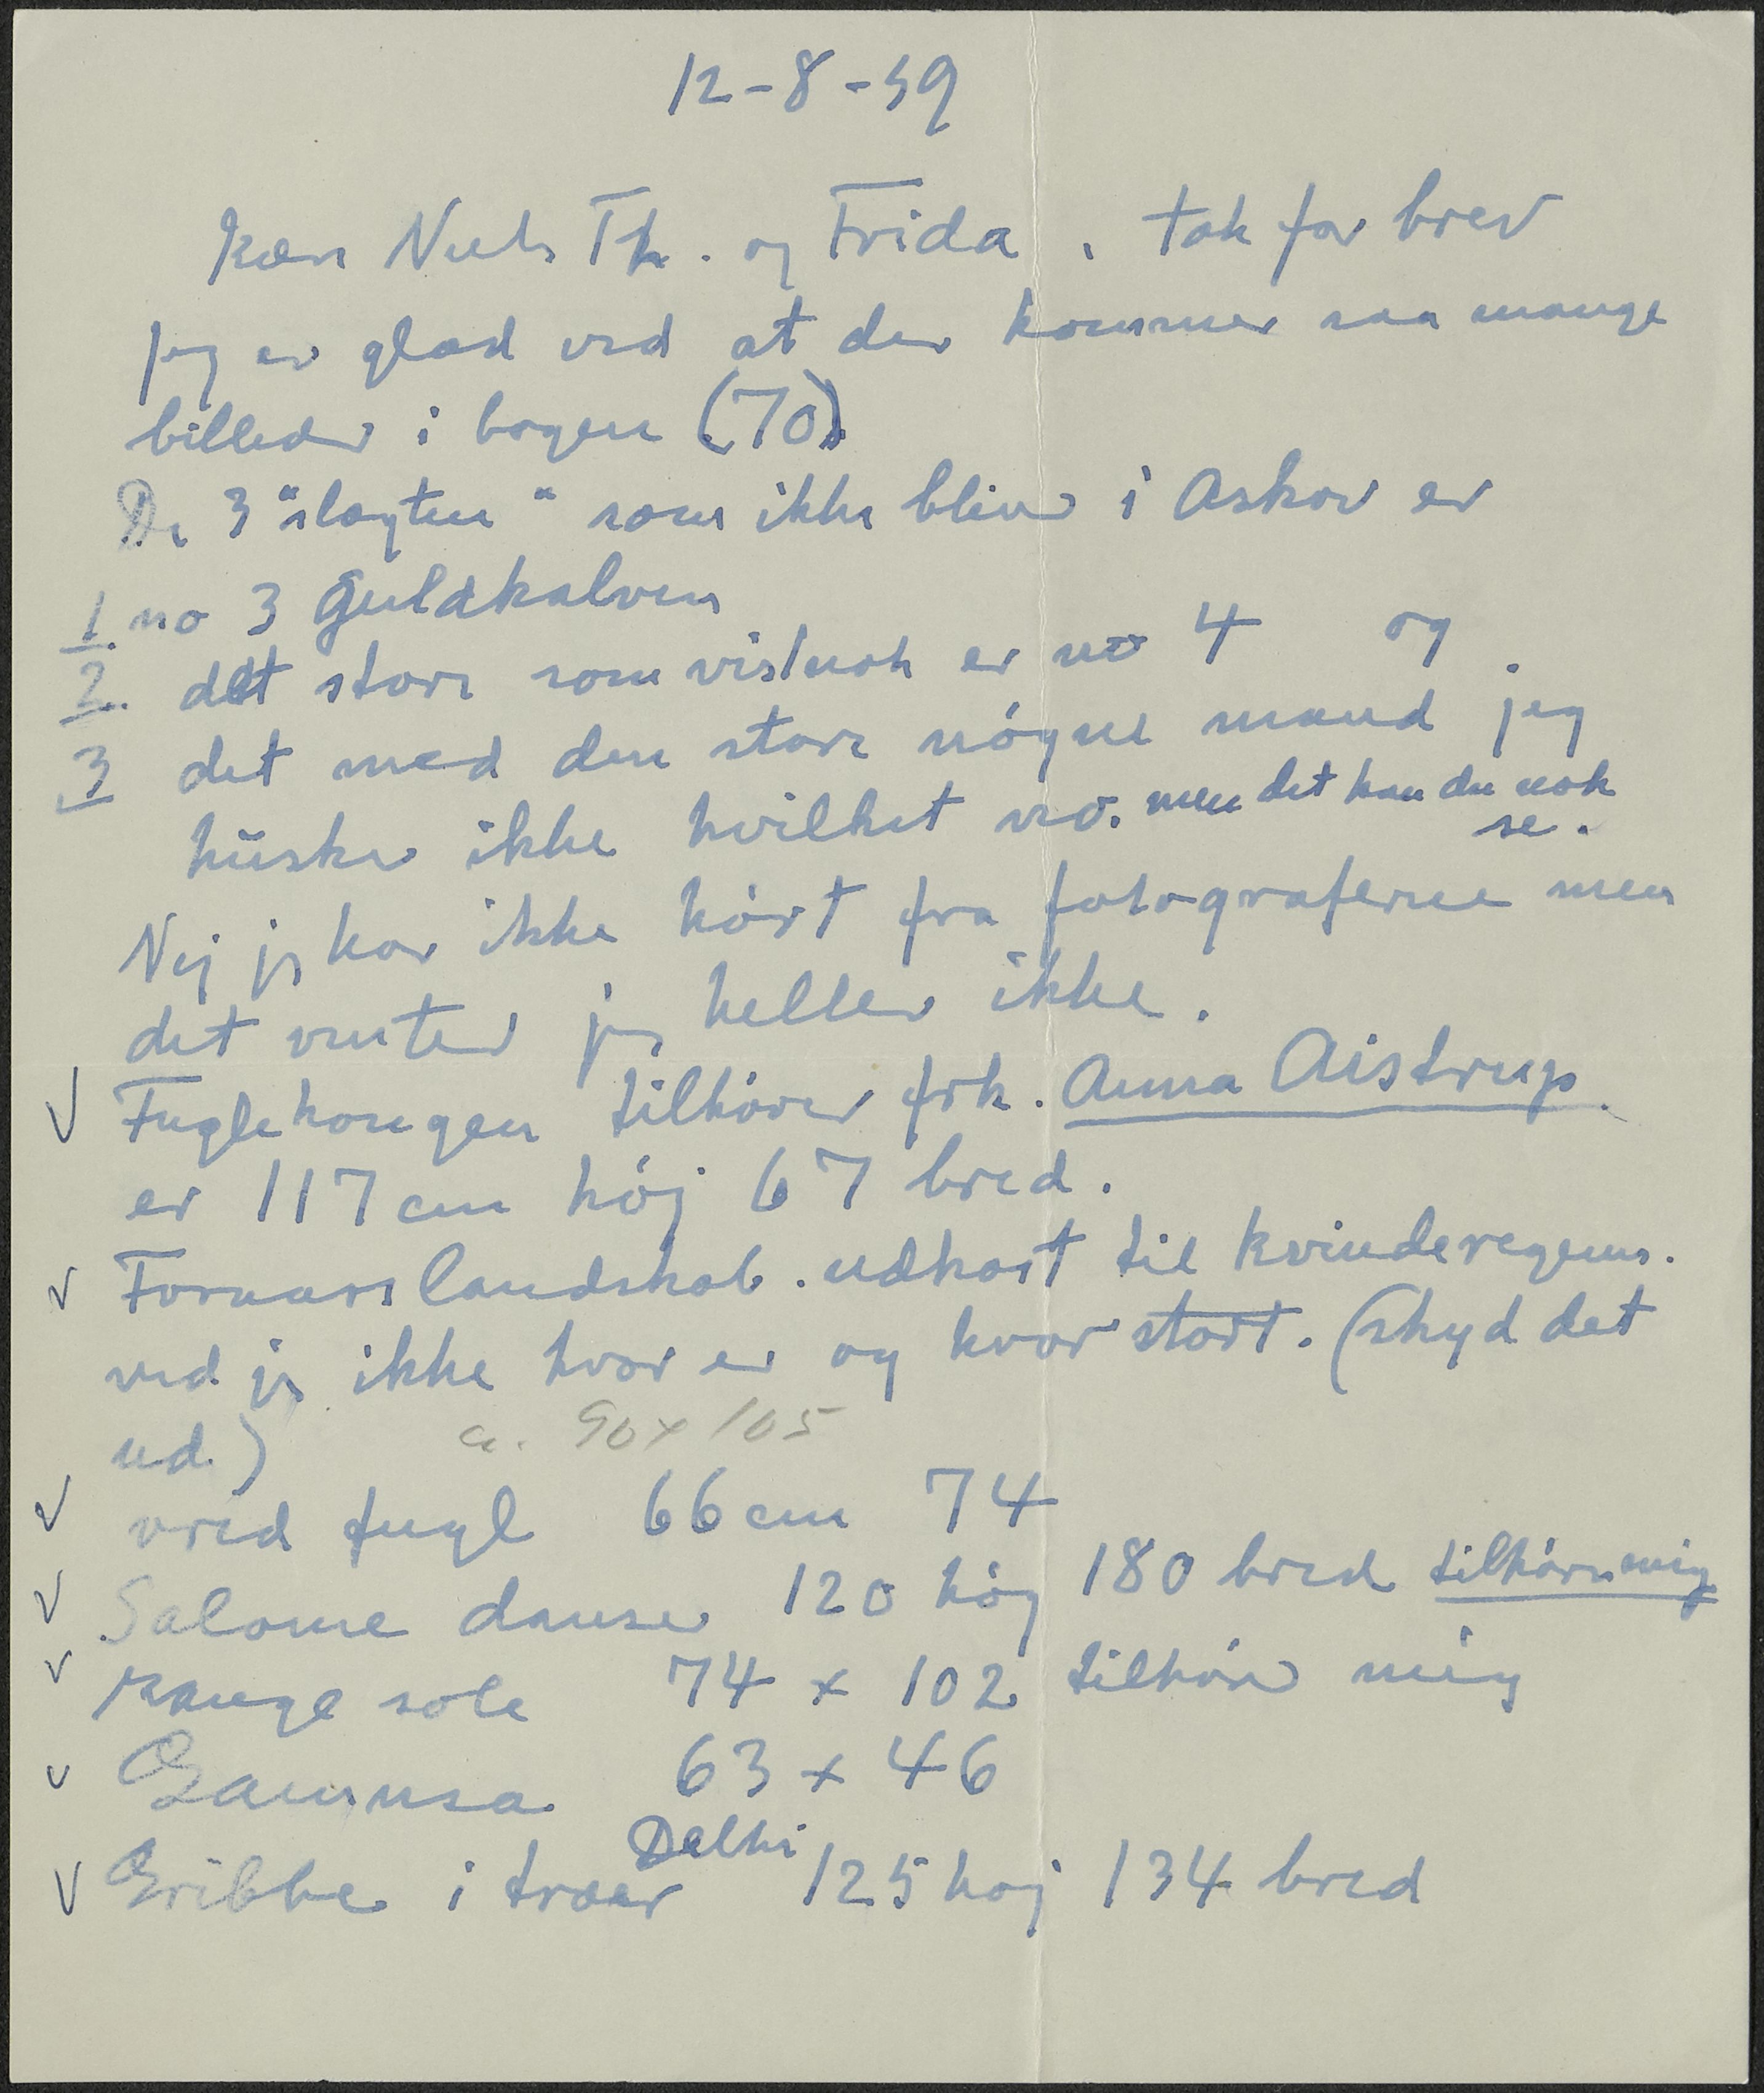 12-8-59
Kære Niels Th. og Frida, tak for brev
jeg er glad ved at der kommer saa mange
billeder i bogen (70)
De 3 "slagten" som ikke bliver i Askov er
1. no 3 Guldkalven
2. det store som vistnok er no 4 og
3 det med den store nögne mand jeg
husker ikke hvilket no. men det kan du nok
se.
Nej jeg har ikke hört fra fotograferne men
det venter jeg heller ikke.
V Fuglekongen tilhörer frk. Anna Aistrup.
er 117 cm höj 67 bred.
V Foraarslandskab. udkast til kvinderegens.
ved jeg ikke hvor er og hvor stort. (skyd det
ud) c. 90 x 105
V vred fugl 66 cm 74
V Salome danser 120 höj 180 bred tilhörer mig
V mange sole 74 x 102 tilhörer mig
V Gamusa 63 x 46
Delhi
V Gribbe i træer 125 höj 134 bred